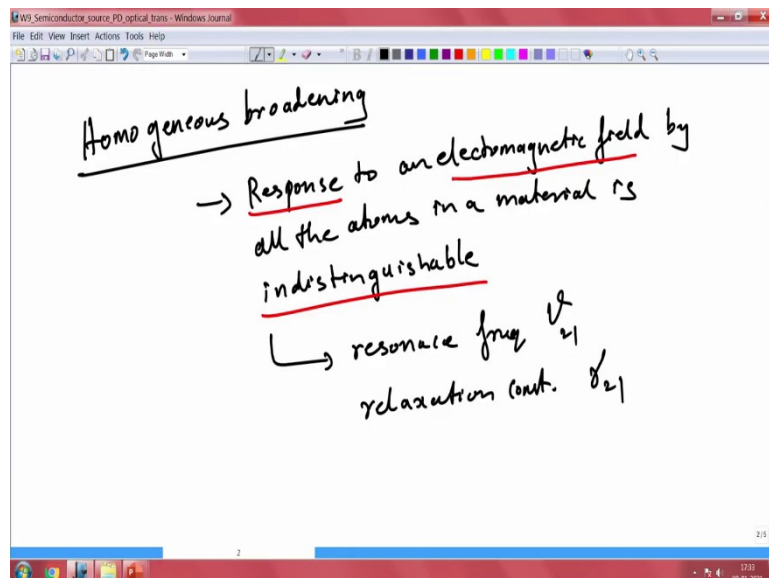 W9_Semiconductor_source_PD_optical_trans - Windows Journal
File Edit View Insert Actions Tools Help
Page Width
B I
Homogeneous broadening
→ Response to an electromagnetic field by
all the atoms in a material is
indistinguishable
→ resonace freq ν21
relaxation const. γ21
2
2/5
17:33